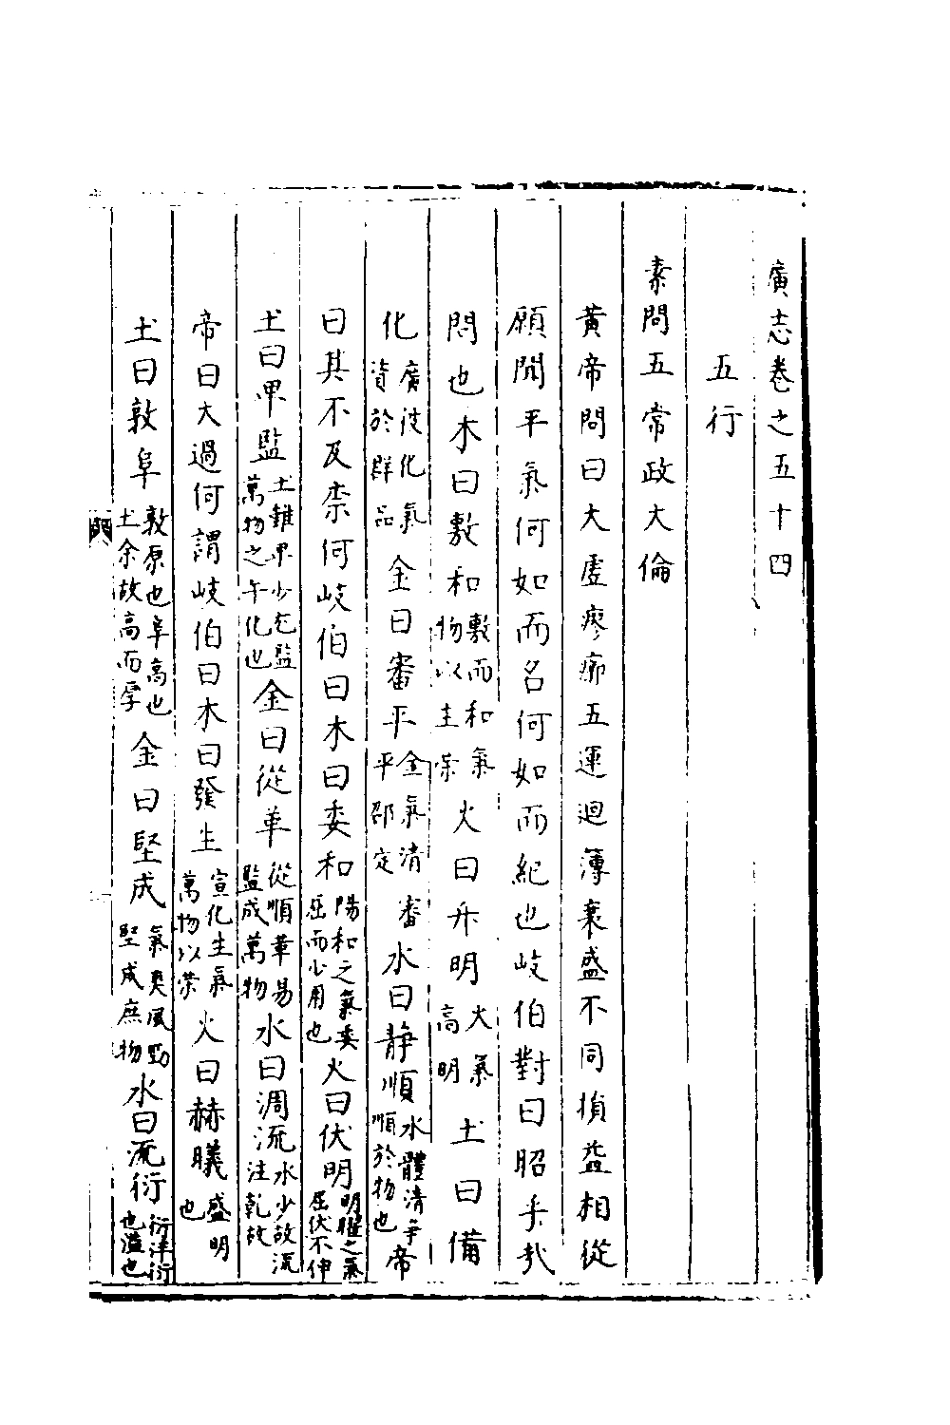 廣志卷之五十四
五行
素問五常政大倫
黃帝問曰大虛寥廓五運迴薄衰盛不同損益相從
願聞平氣何如而名何如而紀也岐伯對曰昭乎㢤
問也木曰敷和敷而和氣物以主榮火曰升明大氣高明土曰備
化廣彼化氣資於群品金曰審平金氣清審平邵定水曰静順水體清爭順於物也帝
曰其不及柰何岐伯曰木曰委和陽和之氣委屈而少用也火曰伏明明曜之氣屈伏不伸
土曰卑監土雖卑少尤監萬物之午化也金曰從革從順革易監成萬物水曰涸流水少故流注乾故
帝曰大過何謂岐伯曰木曰發生宣化生氣萬物以榮火曰赫曦盛明也
土曰敦阜敦原也阜高也土余故高而厚金曰堅成氣爽風勁堅成庶物水曰流衍衍洋衍也溢也